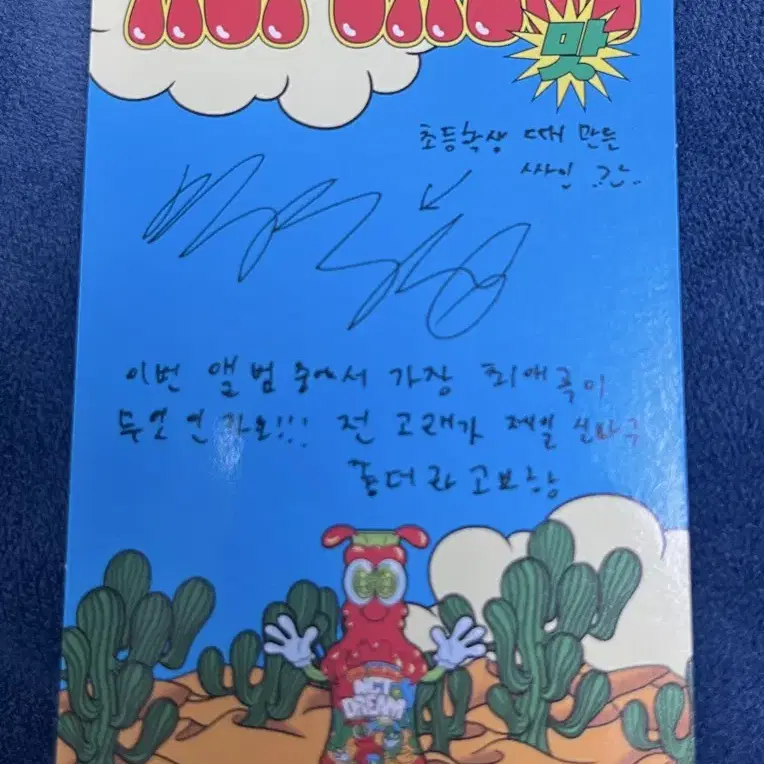 맛
초등학생 때 만든
싸인 ㅋㅋ
이번 앨범 중에서 가장 최애곡이
무엇인가요!!! 전 고래가 제일 신나구
좋더라고보항
NCT
DREAM